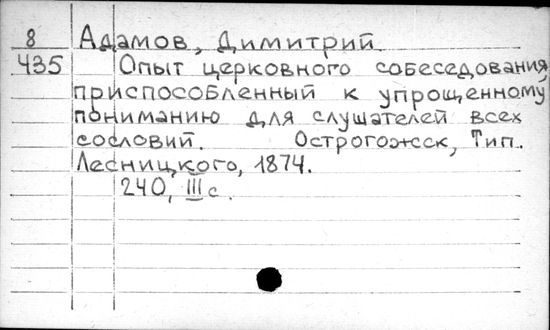 8 Адамов, Димитрий
435 Опыт церковного собеседования,
приспособленный к упрощенному
пониманию для слушателей всех
сословий. Острогожск, Тип.
Лесницкого, 1874.
240, III с.